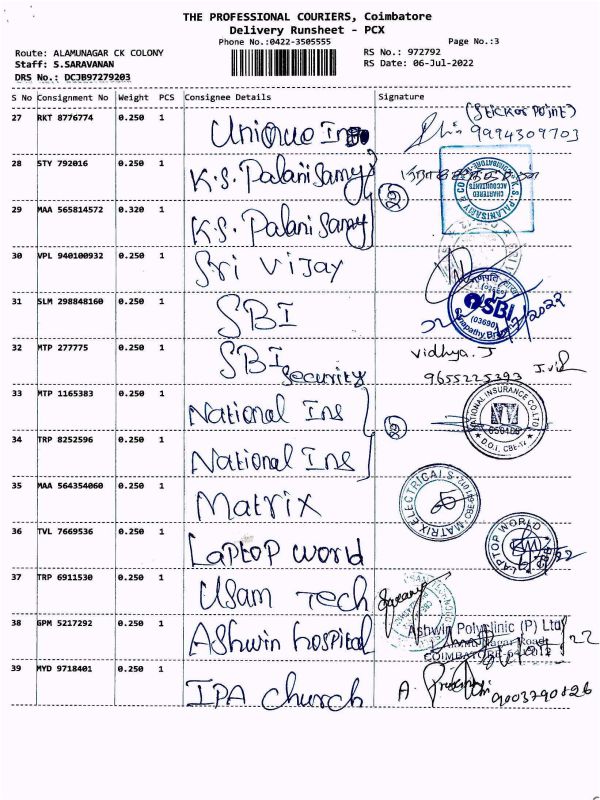 THE PROFESSIONAL COURIERS, Coimbatore
Delivery Runsheet - PCX
Phone No.:0422-3505555
Page No.:3
Route: ALAMUNAGAR CK COLONY
RS No.: 972792
Staff: S.SARAVANAN
RS Date: 06-Jul-2022
DRS No.: DCJB97279203
S No Consignment No Weight PCS Consignee Details Signature
27 RKT 8776774 0.250 1 Unique Ins (Sticker Point)
9994309703
28 STY 792016 0.250 1 K.S. Palanisamy
CHARTERED ACCOUNTANTS
29 MAA 565814572 0.320 1 K.S. Palanisamy
30 VPL 940100932 0.250 1 Sri Vijay
31 SLM 298848160 0.250 1 SBI
SBI
(03690)
32 MTP 277775 0.250 1 SBI Security
Vidhya. J
9655225393
33 MTP 1165383 0.250 1 National Ins
NATIONAL INSURANCE CO LTD
D.O.I, CBE-12
34 TRP 8252596 0.250 1 National Ins
35 MAA 564354060 0.250 1 Matrix
MATRIX ELECTRICALS
36 TVL 7669536 0.250 1 Laptop World
LAPTOP WORLD
37 TRP 6911530 0.250 1 Usam Tech
38 GPM 5217292 0.250 1 Ashwin Hospital
Ashwin Polyclinic (P) Ltd
39 MYD 9718401 0.250 1 IPA Church
A.
9003790826